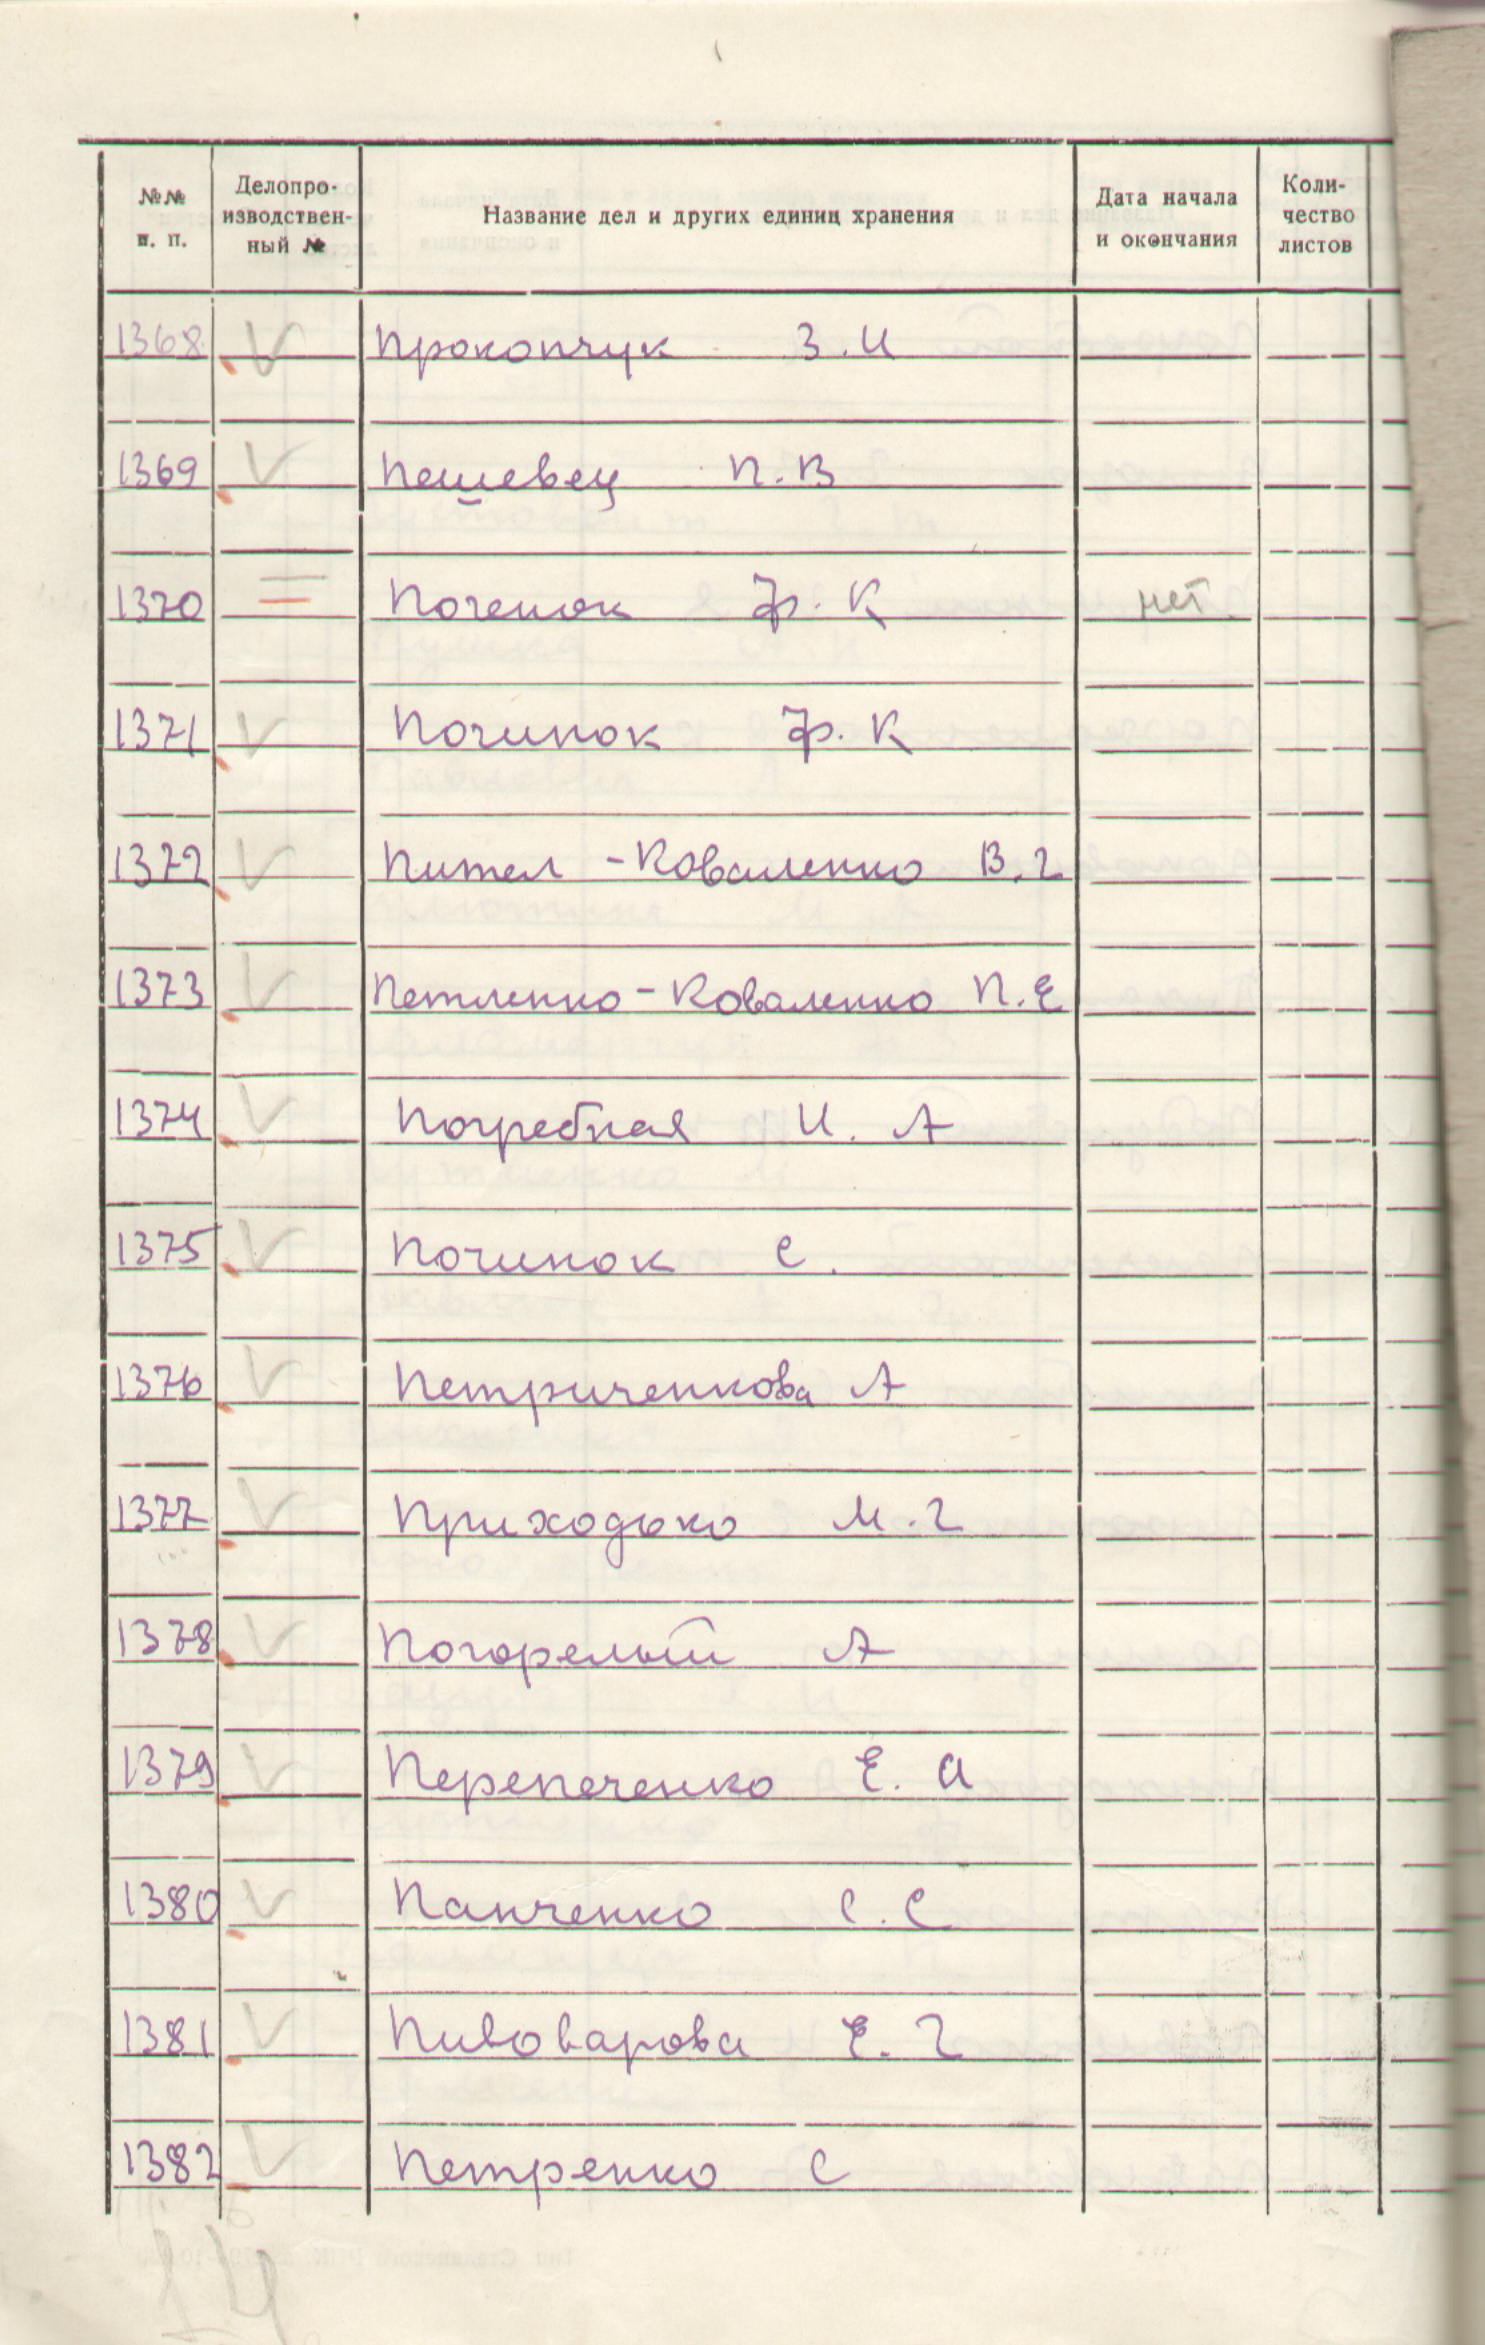 №№ п. п. Делопро-изводствен-ный № Название дел и других единиц хранения Дата начала и окончания Коли-чество листов
1368 V Прокопчук З.И
1369 V Пешевец П.В
1370 = Поченок Ф.К нет
1371 V Починок Ф.К
1372 V Пител-Коваленко В.Г
1373 V Петленко-Коваленко П.Е
1374 V Погребная И.А
1375 V Починок С.
1376 V Петриченкова А
1377 V Приходько М.Г
1378 V Погорелый А
1379 V Перепеченко Е.А
1380 V Панченко С.С
1381 V Пивоварова Е.Г
1382 V Петренко С
14